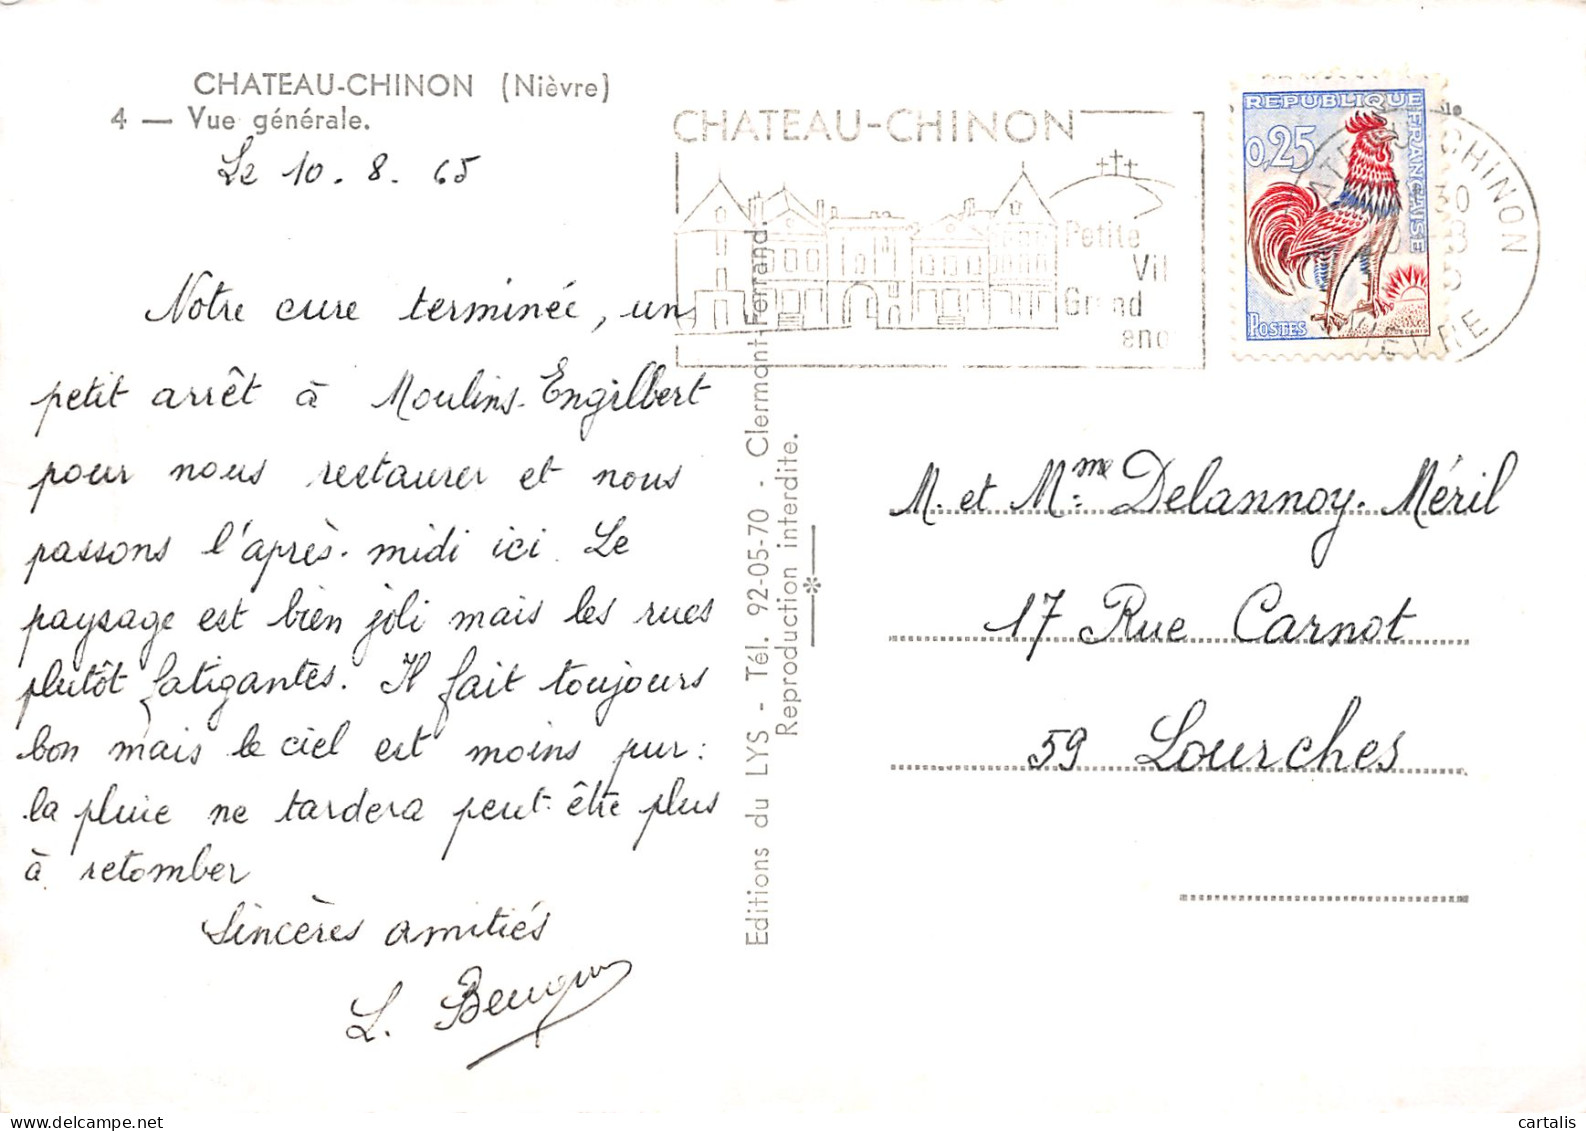 CHATEAU-CHINON (Nièvre)
4 — Vue générale.
Le 10. 8. 65
Notre cure terminée, un
petit arrêt à Moulins-Engilbert
pour nous restaurer et nous
passons l'après-midi ici. Le
paysage est bien joli mais les rues
plutôt fatigantes. Il fait toujours
bon mais le ciel est moins pur :
la pluie ne tardera peut-être plus
à retomber
Sincères amitiés
L.
Editions du LYS - Tél. 92-05-70 - Clermont-Ferrand.
Reproduction interdite.
CHATEAU-CHINON
Petite
Vil
Grand
REPUBLIQUE FRANÇAISE
0,25
POSTES
CHINON
30
M. et Mme Delannoy-Méril
17 Rue Carnot
59 Lourches
cartalis
delcampe.net